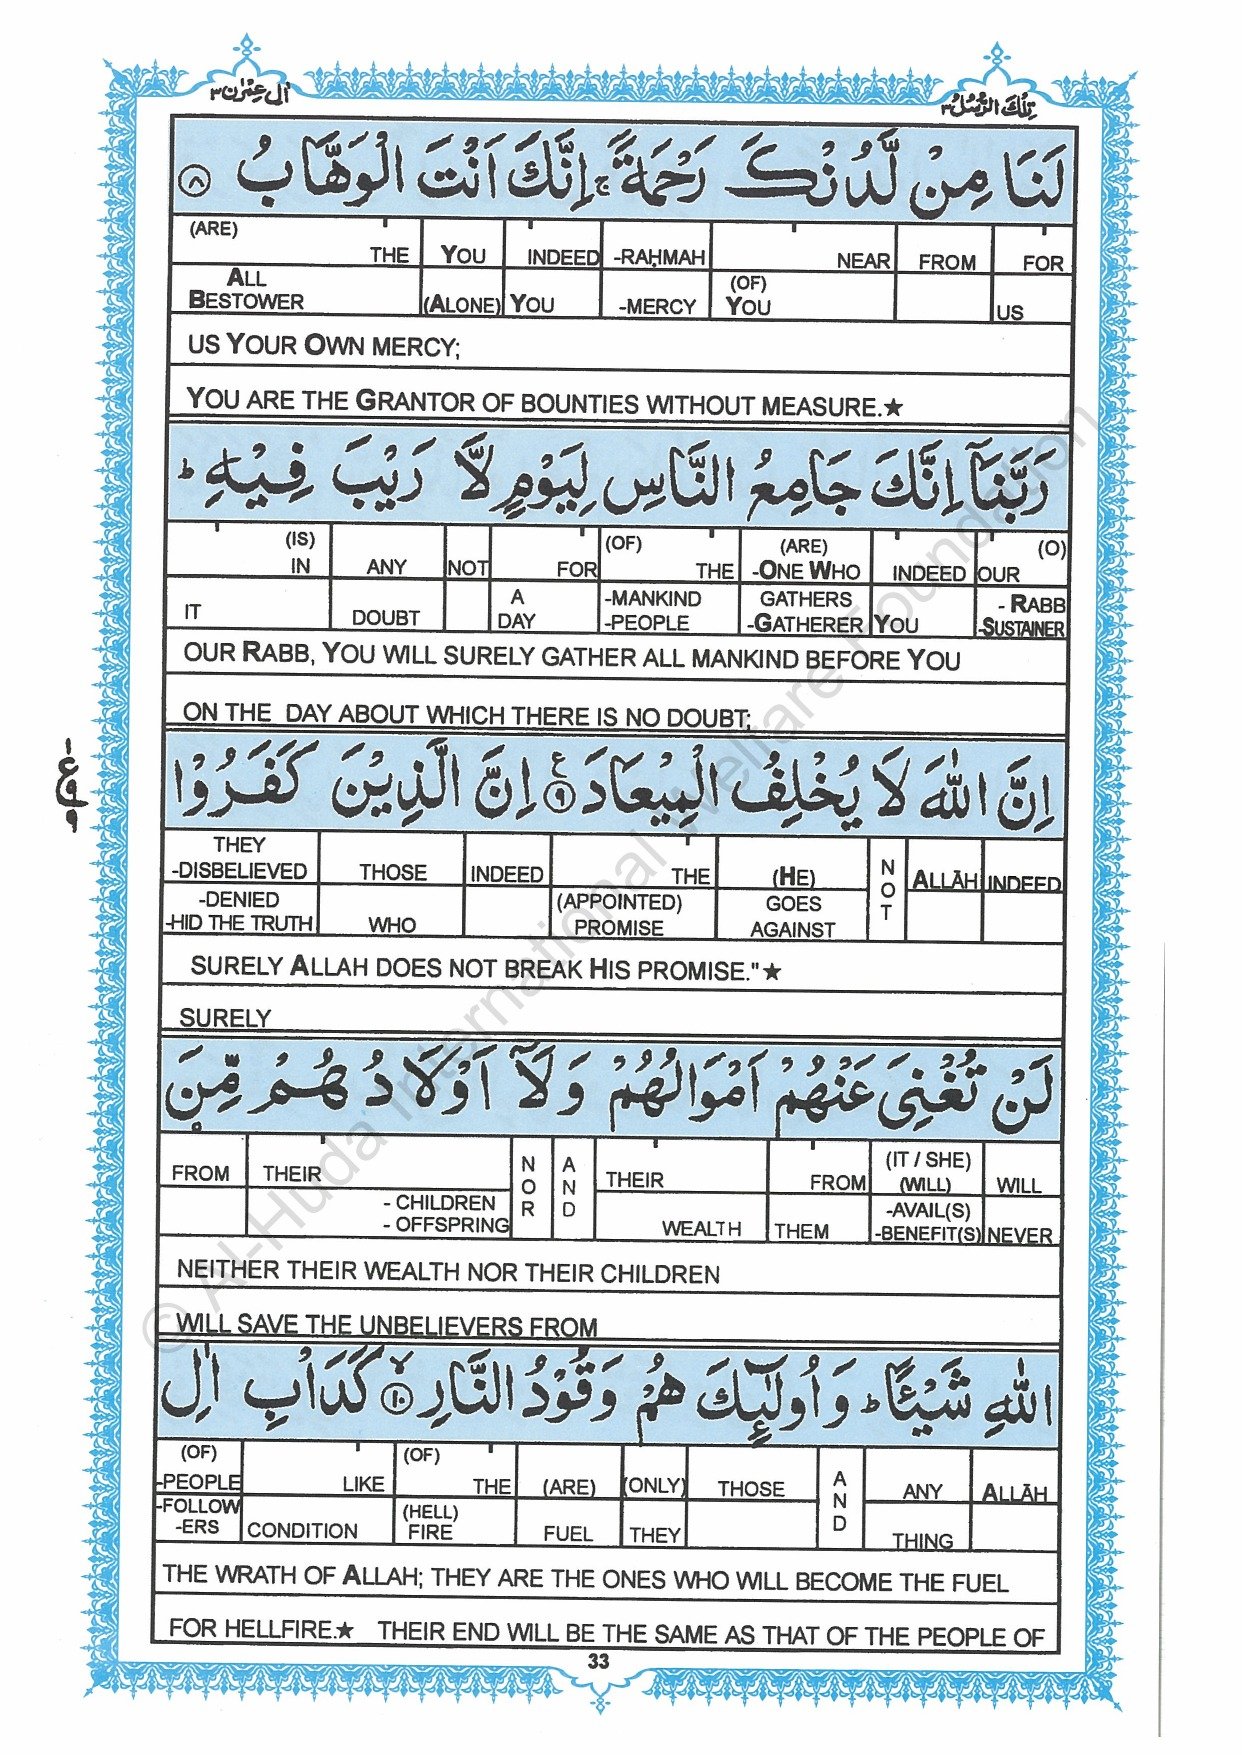 اٰل عِمْرٰن ٣
تِلْكَ الرُّسُلُ ٣
لَنَا مِنْ لَّدُنْكَ رَحْمَةً ۚ اِنَّكَ اَنْتَ الْوَهَّابُ ٨
(ARE) THE YOU INDEED -RAḤMAH NEAR FROM FOR
ALL BESTOWER (ALONE) YOU -MERCY (OF) YOU US
US YOUR OWN MERCY;
YOU ARE THE GRANTOR OF BOUNTIES WITHOUT MEASURE.★
رَبَّنَاۤ اِنَّكَ جَامِعُ النَّاسِ لِيَوْمٍ لَّا رَيْبَ فِيْهِ ؕ
(IS) IN ANY NOT FOR (OF) THE (ARE) -ONE WHO INDEED (O) OUR
IT DOUBT A DAY -MANKIND -PEOPLE GATHERS -GATHERER YOU - RABB -SUSTAINER
OUR RABB, YOU WILL SURELY GATHER ALL MANKIND BEFORE YOU
ON THE DAY ABOUT WHICH THERE IS NO DOUBT;
اِنَّ اللّٰهَ لَا يُخْلِفُ الْمِيْعَادَ ٩ ع اِنَّ الَّذِيْنَ كَفَرُوْا
١
ع
٩
٩
THEY -DISBELIEVED THOSE INDEED THE (HE) NOT ALLĀH INDEED
-DENIED -HID THE TRUTH WHO (APPOINTED) PROMISE GOES AGAINST
SURELY ALLAH DOES NOT BREAK HIS PROMISE."★
SURELY
لَنْ تُغْنِيَ عَنْهُمْ اَمْوَالُهُمْ وَلَاۤ اَوْلَادُهُمْ مِّنَ
FROM THEIR NOR AND THEIR FROM (IT / SHE) (WILL) WILL
- CHILDREN - OFFSPRING WEALTH THEM -AVAIL(S) -BENEFIT(S) NEVER
NEITHER THEIR WEALTH NOR THEIR CHILDREN
WILL SAVE THE UNBELIEVERS FROM
اللّٰهِ شَيْـًٔا ؕ وَاُولٰٓئِكَ هُمْ وَقُوْدُ النَّارِ ١٠ ۙ كَدَاْبِ اٰلِ
(OF) -PEOPLE LIKE (OF) THE (ARE) (ONLY) THOSE AND ANY ALLĀH
-FOLLOW -ERS CONDITION (HELL) FIRE FUEL THEY THING
THE WRATH OF ALLAH; THEY ARE THE ONES WHO WILL BECOME THE FUEL
FOR HELLFIRE.★ THEIR END WILL BE THE SAME AS THAT OF THE PEOPLE OF
33
© Al-Huda International Welfare Foundation